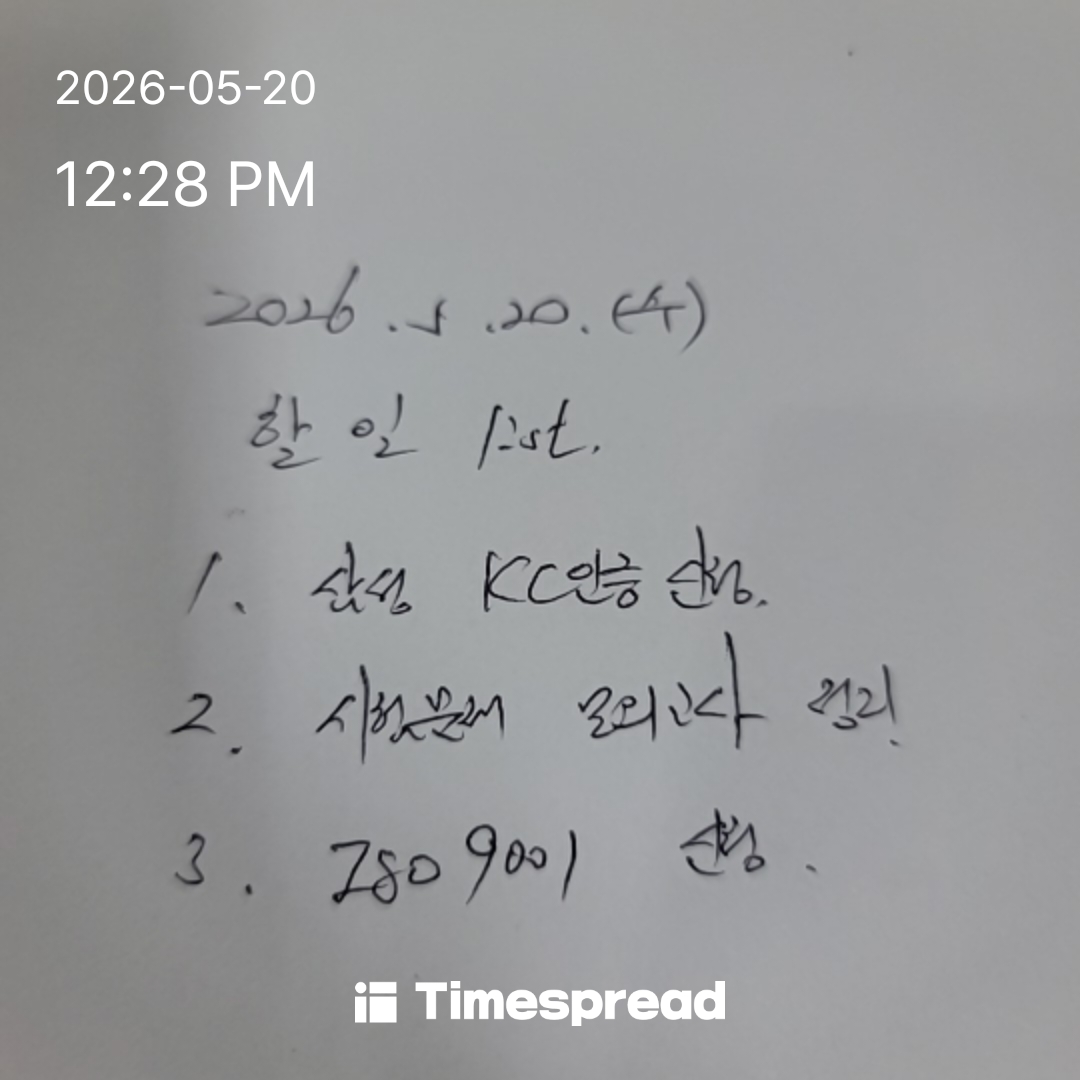 2026-05-20
12:28 PM
2026.5.20.(수)
할 일 list.
1. 삼성 KC인증 신청.
2. 시험문제 모의고사 정리.
3. ISO 9001 신청.
Timespread